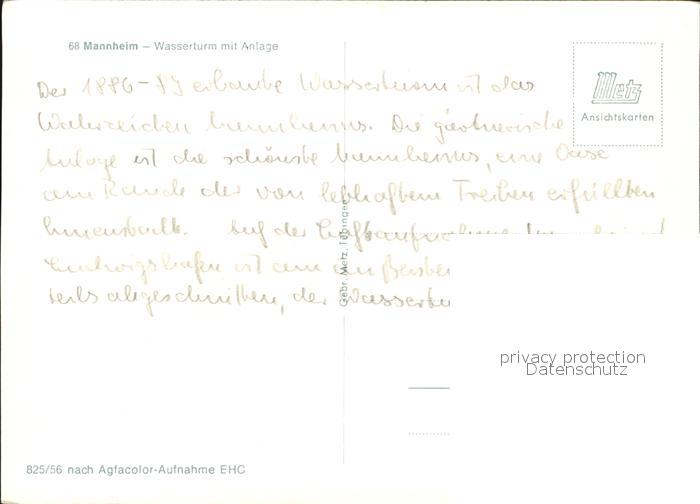 68 Mannheim – Wasserturm mit Anlage
Metz
Ansichtskarten
Der 1886-89 erbaute Wasserturm ist das
Wahrzeichen Mannheims. Die gärtnerische
Anlage ist die schönste Mannheims, eine Oase
am Rande der von lebhaftem Treiben erfüllten
Innenstadt. Auf der Luftaufnahme
Ludwigshafen ist am
teils abgeschnitten, der Wassertu
Gebr. Metz, Tübingen
privacy protection
Datenschutz
825/56 nach Agfacolor-Aufnahme EHC